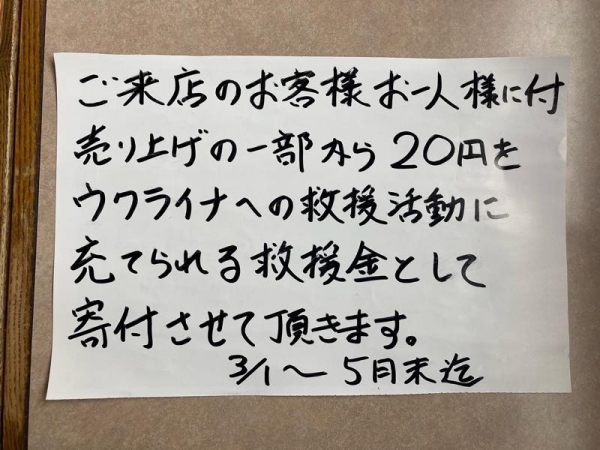 ご来店のお客様お一人様に付
売り上げの一部から20円を
ウクライナへの救援活動に
充てられる救援金として
寄付させて頂きます。
3/1〜5月末迄